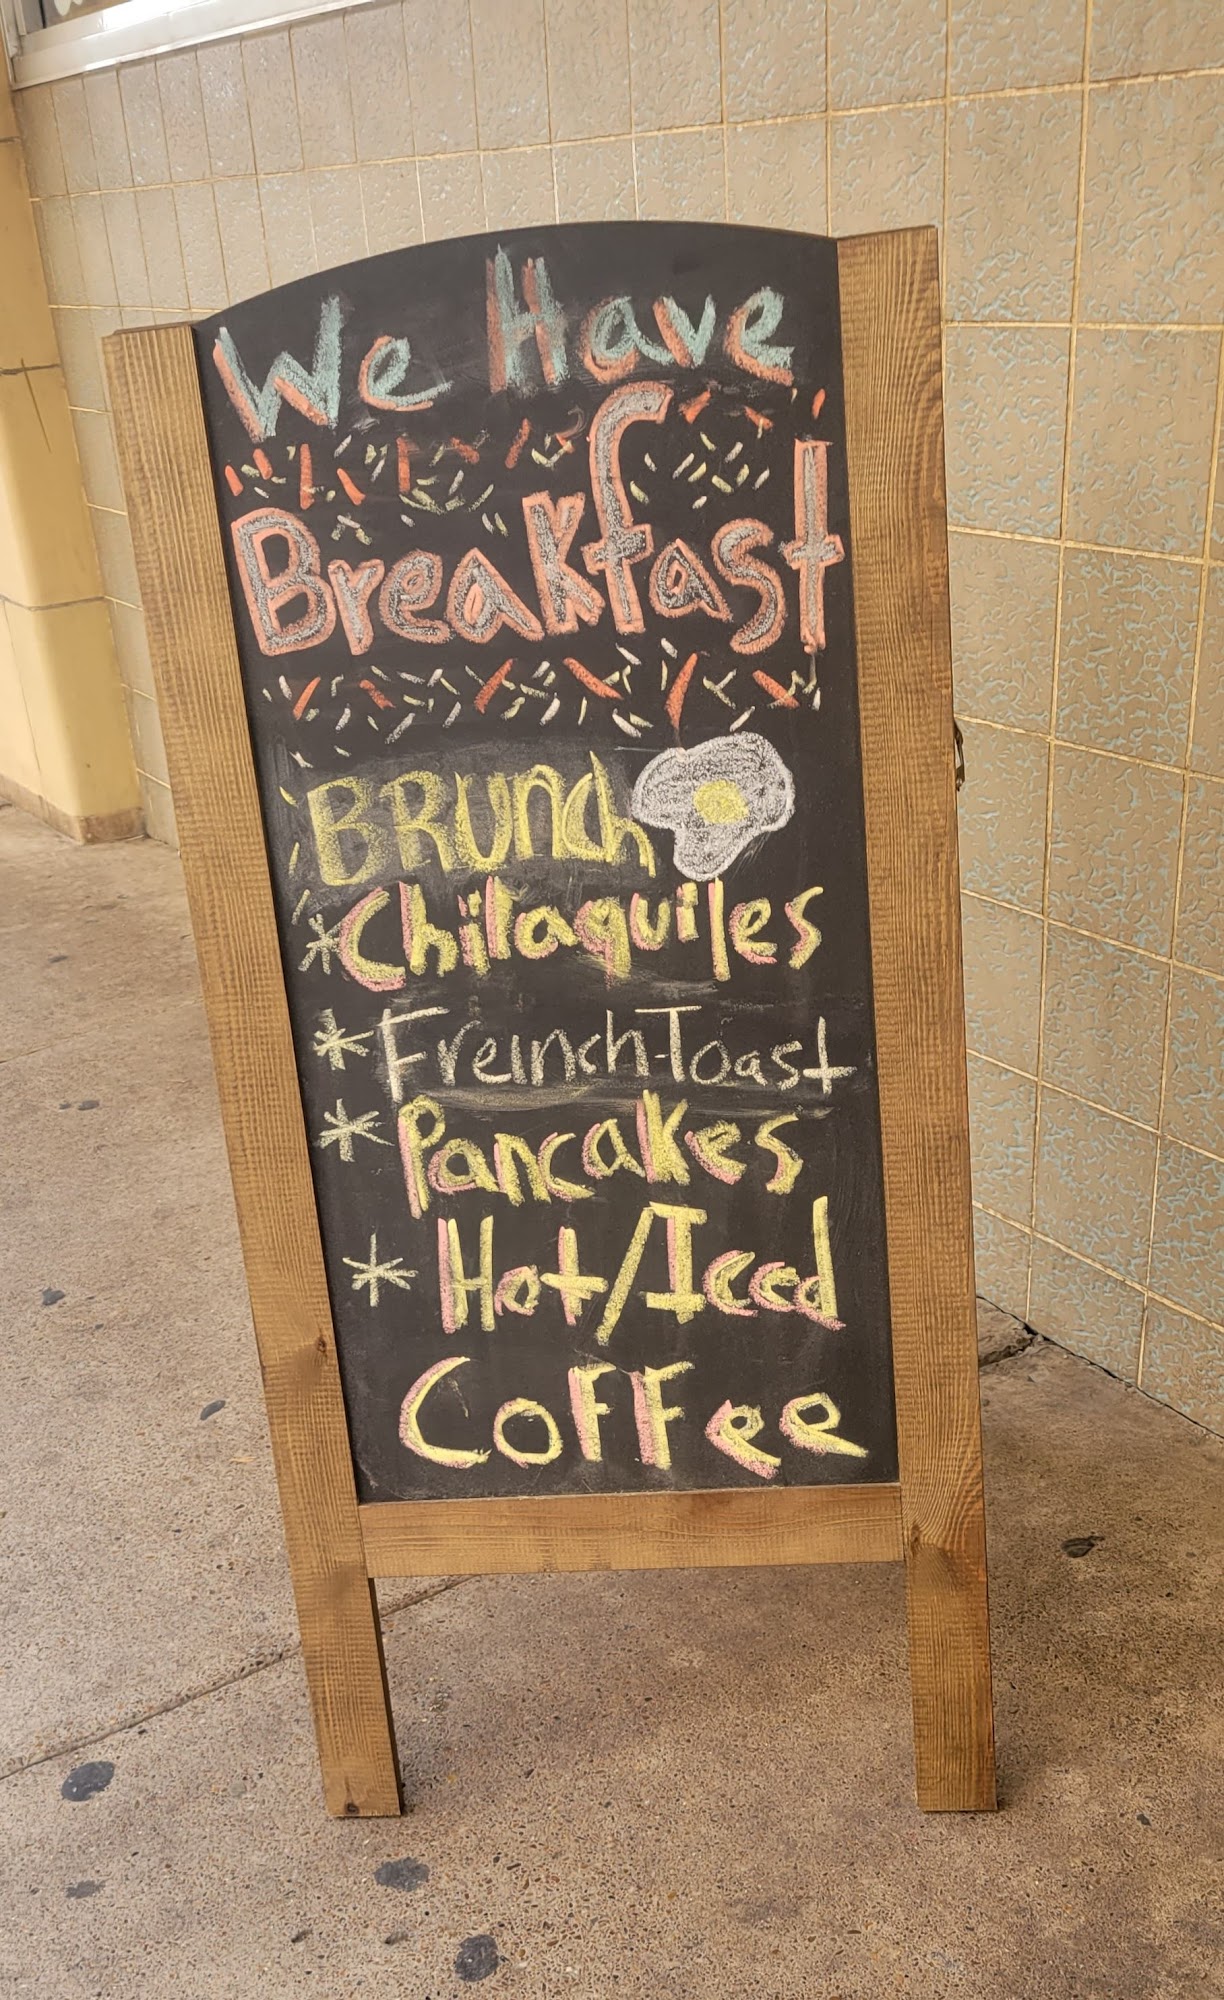 We Have
Breakfast
BRUnch
*Chilaquiles
*Freinch-Toast
*Pancakes
*Hot/Iced
CoFFee